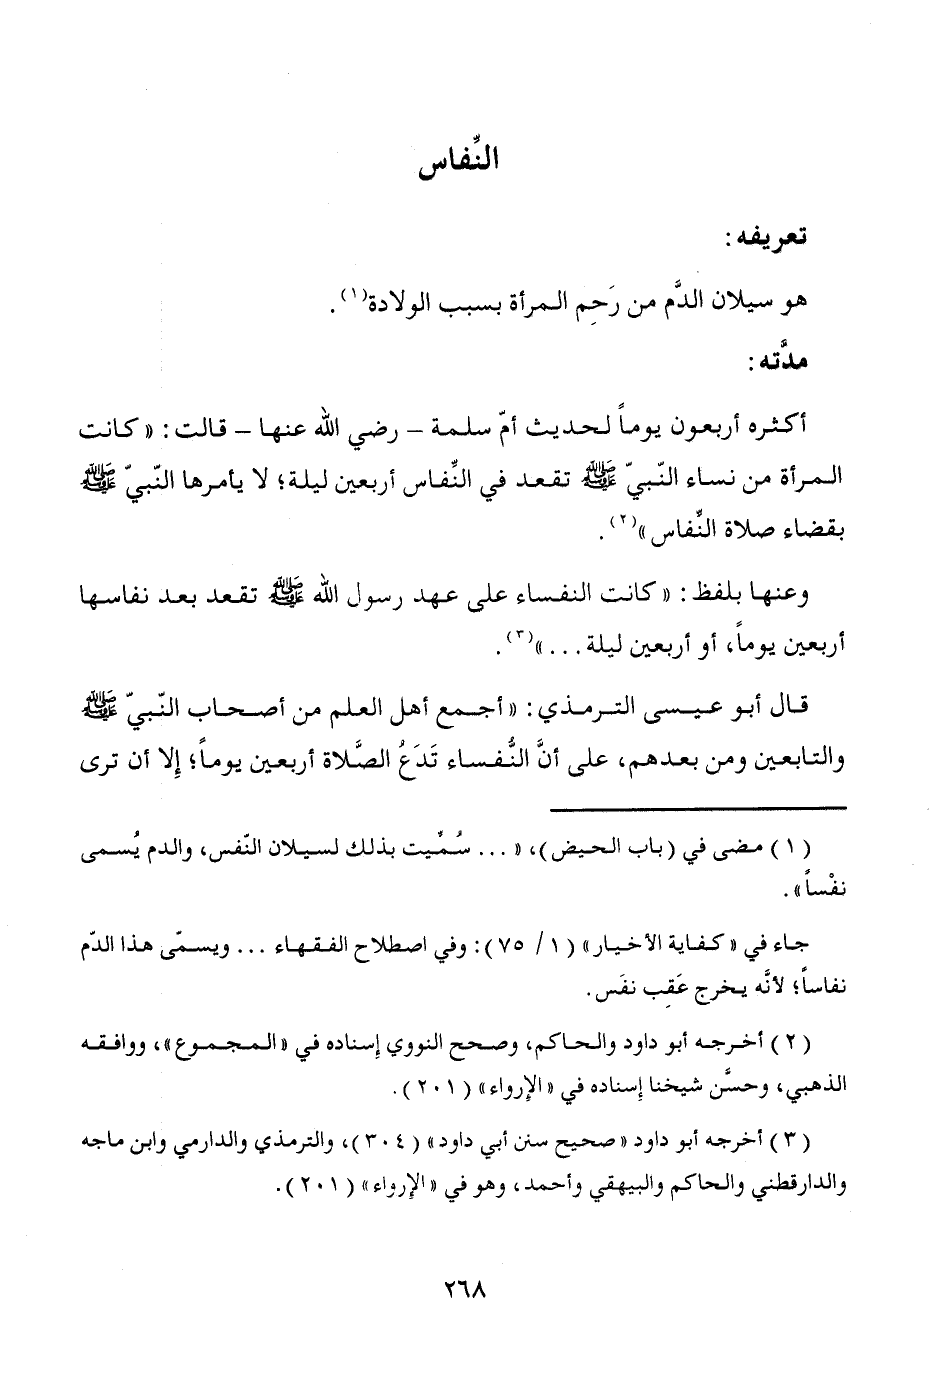 النِّفاس
تعريفه :
هو سيلان الدَّم من رَحِم المرأة بسبب الولادة(١) .
مدَّته :
أكثره أربعون يوماً لحديث أمّ سلمة – رضي الله عنها – قالت : « كانت
المرأة من نساء النّبيّ ﷺ تقعد في النِّفاس أربعين ليلة؛ لا يأمرها النّبيّ ﷺ
بقضاء صلاة النِّفاس »(٢) .
وعنها بلفظ : « كانت النفساء على عهد رسول الله ﷺ تقعد بعد نفاسها
أربعين يوماً، أو أربعين ليلة . . . »(٣) .
قال أبو عيسى الترمذي : « أجمع أهل العلم من أصحاب النّبيّ ﷺ
والتابعين ومن بعدهم، على أنَّ النُّفساء تَدَعُ الصَّلاة أربعين يوماً؛ إلا أن ترى
( ١ ) مضى في (باب الحيض)، « . . . سُمِّيت بذلك لسيلان النّفس، والدم يُسمى
نفْساً » .
جاء في « كفاية الأخيار» ( ١ / ٧٥ ) : وفي اصطلاح الفقهاء . . . ويسمّى هذا الدّم
نفاساً؛ لأنَّه يخرج عَقِب نفَس .
( ٢ ) أخرجه أبو داود والحاكم، وصحح النووي إسناده في « المجموع »، ووافقه
الذهبي، وحسَّن شيخنا إسناده في « الإرواء » ( ٢٠١ ) .
( ٣ ) أخرجه أبو داود « صحيح سنن أبي داود » ( ٣٠٤ )، والترمذي والدارمي وابن ماجه
والدارقطني والحاكم والبيهقي وأحمد، وهو في « الإرواء » ( ٢٠١ ) .
٢٦٨